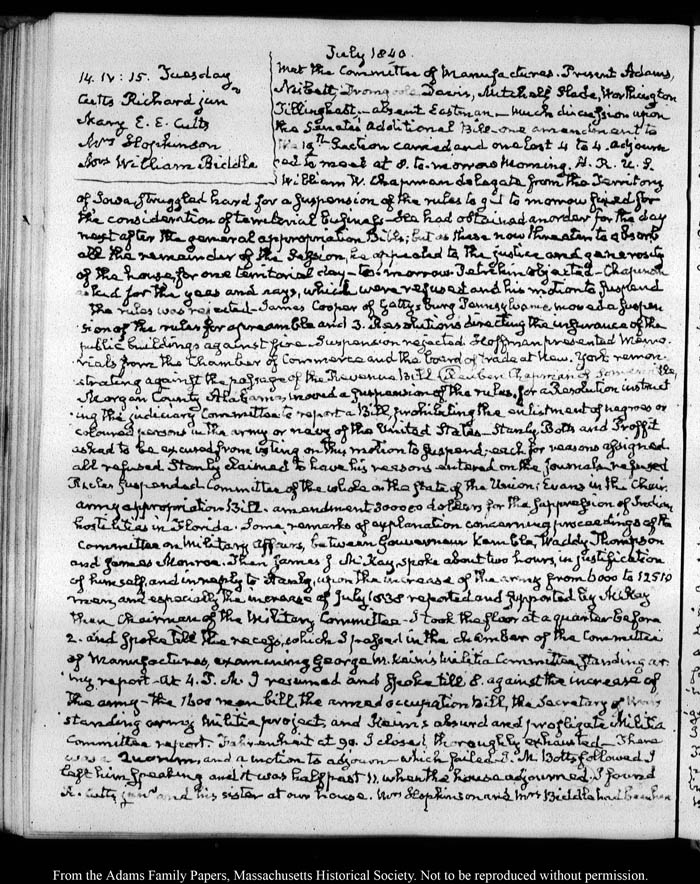 July 1840.
14. IV: 15. Tuesday
Cutts Richard jun.r
Mary E. E. Cutts
Mrs Hopkinson
Mrs William Biddle
Met the Committee of Manufactures. Present Adams,
Nisbett, Davis, Mitchell, Slade, Worthington
Tillinghast. absent Eastman — Much discussion upon
the Senate's additional Bill — one amendment to
the Section carried and one lost 4 to 4. adjourn
ed to meet at 8. to-morrow Morning. H. R. U. S.
William W. Chapman delegate from the Territory
of Iowa struggled hard for a suspension of the rules to get to morrow fixed for
the consideration of territorial business. He had obtained an order for the day
next after the general appropriation Bills; but as these now threaten to absorb
all the remainder of the Session, he appealed to the justice and generosity
of the house, for one territorial day — to-morrow. Petrikin objected — Chapman
asked for the yeas and nays, which were refused and his motion to suspend
the rules was rejected — James Cooper of Gettysburg Pennsylvania, moved a suspen
sion of the rules for a preamble and 3. Resolutions directing the insurance of the
public buildings against fire. Suspension rejected. Hoffman presented Memo
rials from the Chamber of Commerce and the board of trade at New York remon
strating against the passage of the Revenue Bill. Reuben Chapman of Somerville,
Morgan County Alabama, moved a suspension of the rules, for a Resolution instruct
ing the judiciary Committee to report a Bill, prohibiting the enlistment of negroes or
coloured persons in the army or navy of the United States — Stanly, Botts and Proffit
asked to be excused from voting on this motion to suspend; each for reasons assigned
all refused. Stanly claimed to have his reasons entered on the journals — refused
Rules suspended. Committee of the whole on the state of the Union; Evans in the Chair.
army appropriation Bill — amendment 300000 dollars for the suppression of Indian
hostilities in Florida. Some remarks of explanation concerning proceedings of the
Committee on Military Affairs, between Gouverneur Kemble, Waddy Thompson
and James Monroe. Then James J. McKay, spoke about two hours, in justification
of himself, and in reply to Stanly, upon the increase of the army from 6000 to 12510
men, and especially the increase of July 1838 reported and supported by McKay
then Chairman of the Military Committee — I took the floor at a quarter before
2. and spoke till the recess, which I passed in the chamber of the Committee
of Manufactures, examining George M. Keim's Militia Committee, standing ar
my report. At 4. P. M. I resumed and spoke till 8. against the increase of
the army — the 1600 men bill, the armed occupation bill, the Secretary of War's
standing army Militia project, and Keim's absurd and profligate Militia
Committee report. Fahrenheit at 90. I closed, thoroughly exhausted — There
was a Quorum, and a motion to adjourn — which failed. J. M. Botts followed I
left him speaking and it was half past 11. when the house adjourned. I found
R. Cutts jun.r and his sister at our house. Mrs Hopkinson and Mrs Biddle had been here
From the Adams Family Papers, Massachusetts Historical Society. Not to be reproduced without permission.